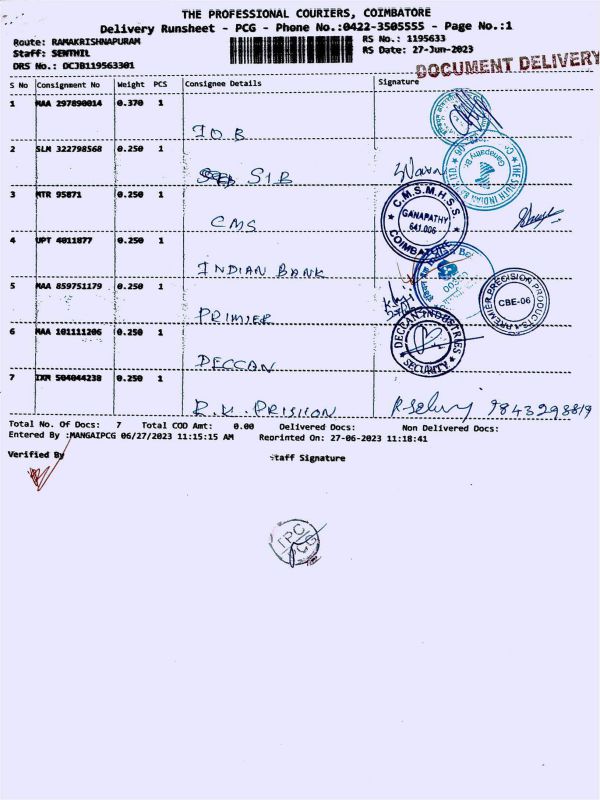 THE PROFESSIONAL COURIERS, COIMBATORE
Delivery Runsheet - PCG - Phone No.:0422-3505555 - Page No.:1
Route: RAMAKRISHNAPURAM
RS No.: 1195633
Staff: SENTHIL
RS Date: 27-Jun-2023
DRS No.: DCJB119563301
DOCUMENT DELIVERY
S No Consignment No Weight PCS Consignee Details Signature
1 MAA 297890014 0.370 1
IOB
2 SLM 322798568 0.250 1
SIB
THE SOUTH INDIAN
Ganapathy
3 MTR 95871 0.250 1
CMS
C.M.S.M.H.S.S
GANAPATHY
641.006
COIMBATORE
4 UPT 4011877 0.250 1
INDIAN BANK
5 MAA 859751179 0.250 1
PRIMIER
PREMIER PRECISION PRODUCTS
CBE-06
6 MAA 101111206 0.250 1
DECCAN
DECCAN INDUSTRIES
SECURITY
7 IXM 504044238 0.250 1
R.K. PRISIION
9843298819
Total No. Of Docs: 7 Total COD Amt: 0.00 Delivered Docs: Non Delivered Docs:
Entered By :MANGAIPCG 06/27/2023 11:15:15 AM Reprinted On: 27-06-2023 11:18:41
Verified By
Staff Signature
TPC
PCG